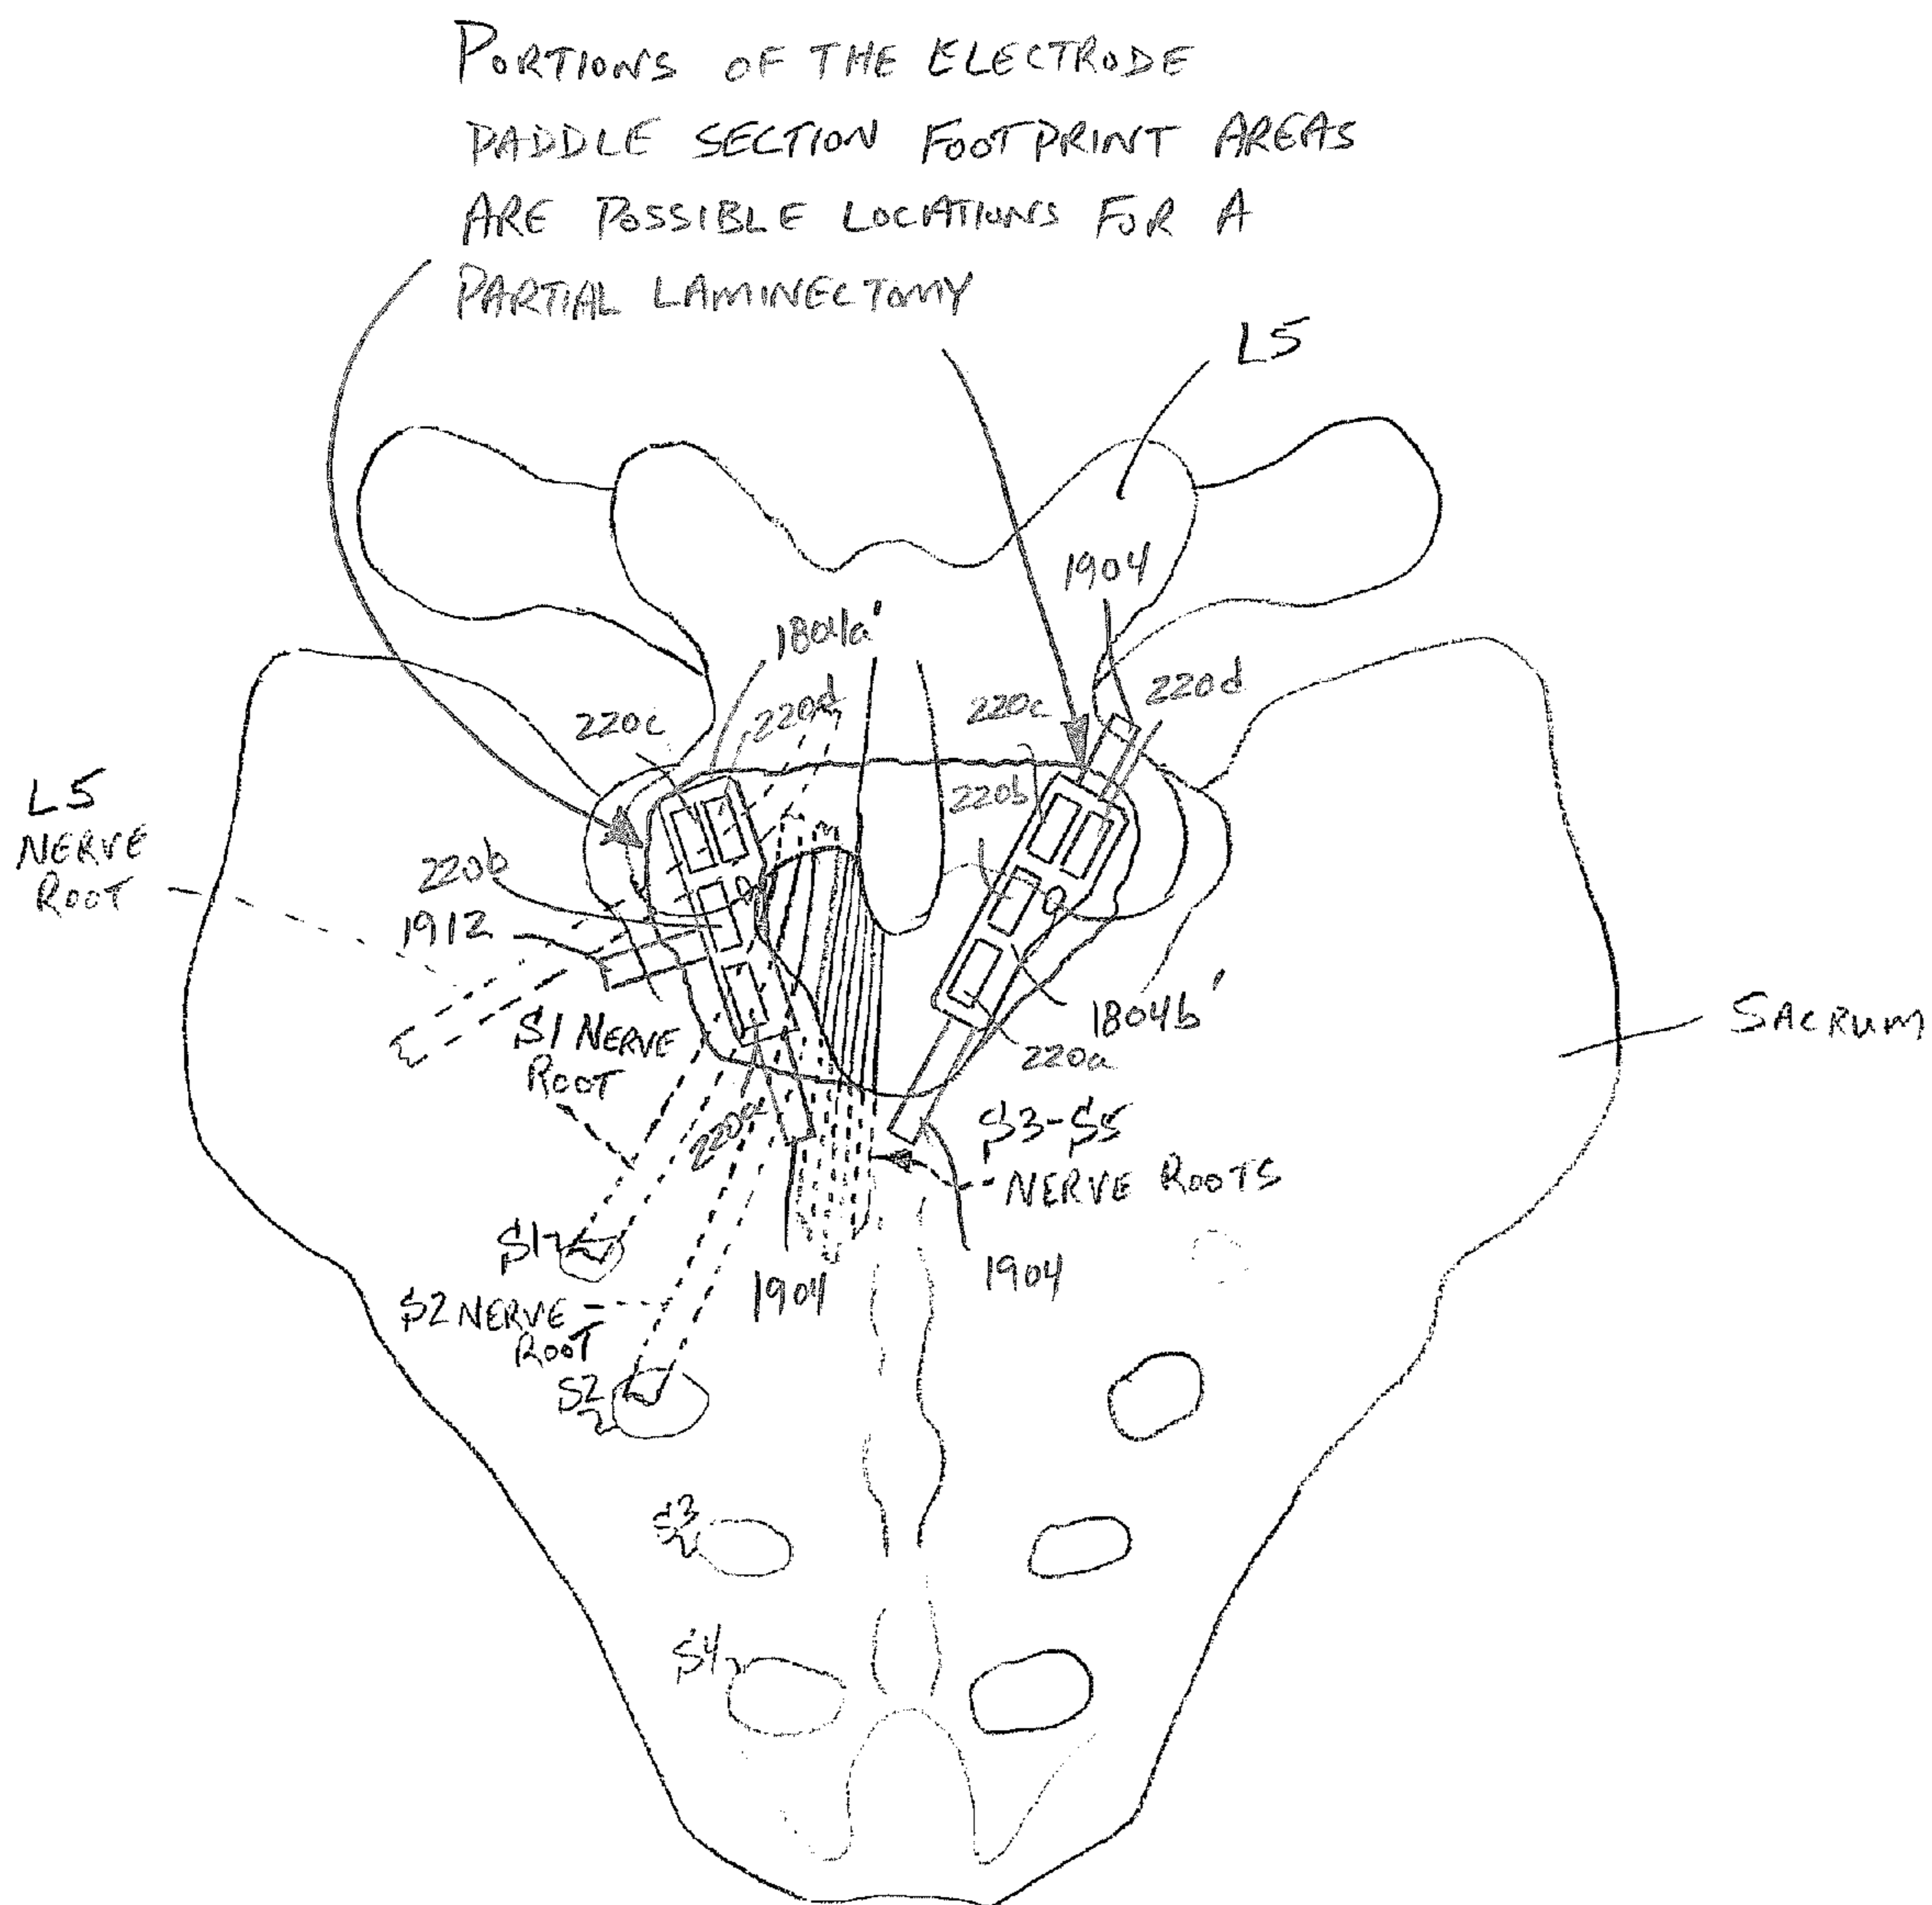 PORTIONS OF THE ELECTRODE
PADDLE SECTION FOOTPRINT AREAS
ARE POSSIBLE LOCATIONS FOR A
PARTIAL LAMINECTOMY
L5
1904
1804a'
220c
220d
220c
220d
L5
NERVE
ROOT
220b
220b
1912
S1 NERVE
ROOT
1804b'
SACRUM
220a
220a
S3-S5
NERVE ROOTS
S1
1904
1904
S2 NERVE
ROOT
S2
S3
S4